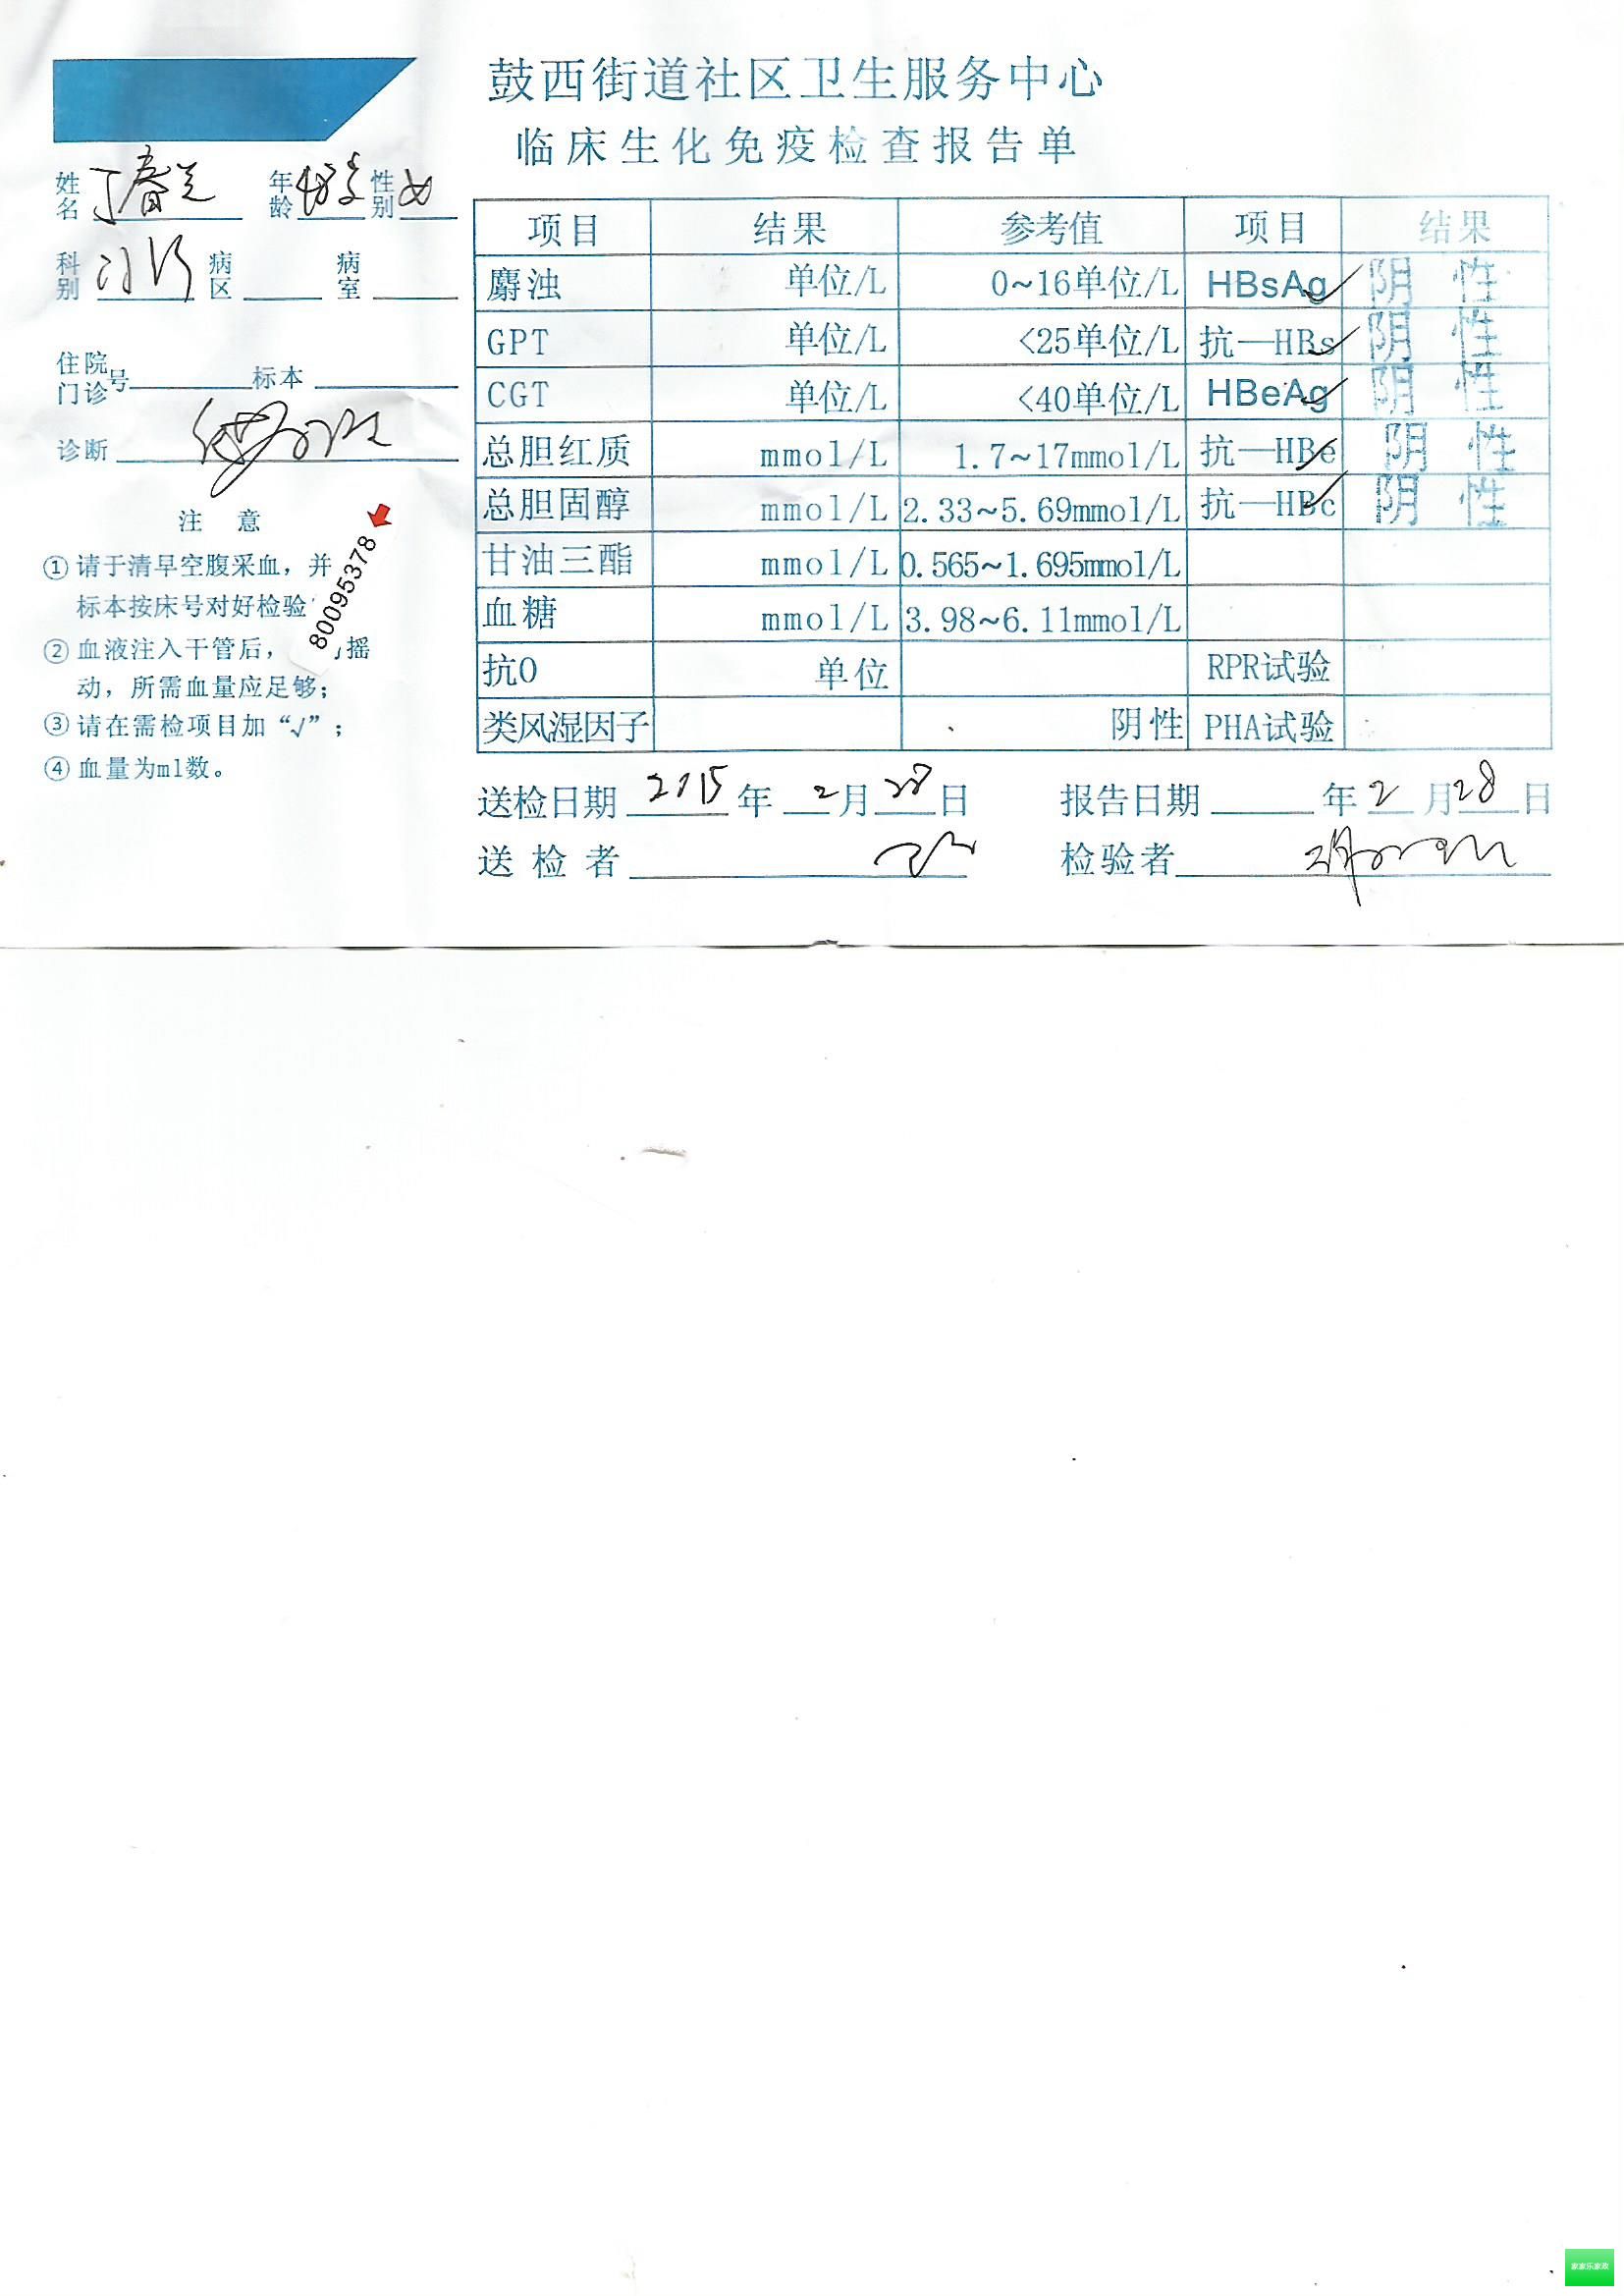 鼓西街道社区卫生服务中心
临床生化免疫检查报告单
姓名 丁春兰 年龄 48岁 性别 女
科别 门诊 病区 病室
住院门诊号 标本
诊断
注 意
①请于清早空腹采血，并
标本按床号对好检验
②血液注入干管后， 摇
动，所需血量应足够；
③请在需检项目加“√”；
④血量为ml数。
80095378
项目 结果 参考值 项目 结果
麝浊 单位/L 0~16单位/L HBsAg✓ 阴 性
GPT 单位/L <25单位/L 抗—HBs✓ 阴 性
CGT 单位/L <40单位/L HBeAg✓ 阴 性
总胆红质 mmol/L 1.7~17mmol/L 抗—HBe✓ 阴 性
总胆固醇 mmol/L 2.33~5.69mmol/L 抗—HBc✓ 阴 性
甘油三酯 mmol/L 0.565~1.695mmol/L
血糖 mmol/L 3.98~6.11mmol/L
抗O 单位 RPR试验
类风湿因子 阴性 PHA试验
送检日期 2015年 2月 28日 报告日期 年 2月 28日
送检者 检验者